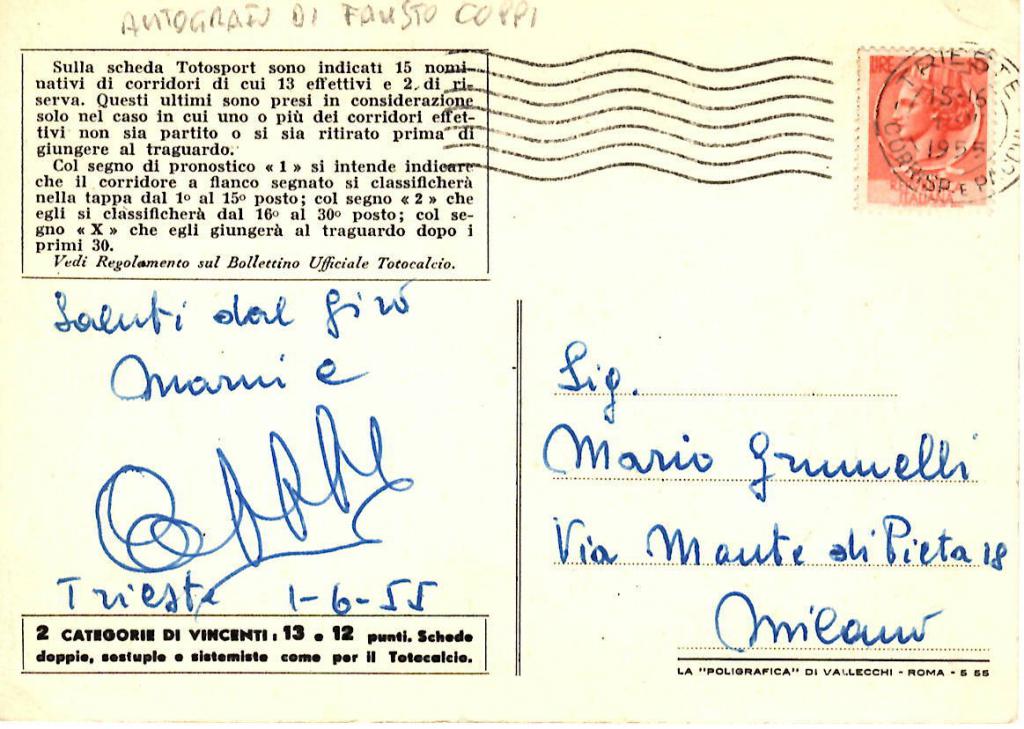 AUTOGRAFO DI FAUSTO COPPI
Sulla scheda Totosport sono indicati 15 nomi-
nativi di corridori di cui 13 effettivi e 2 di ri-
serva. Questi ultimi sono presi in considerazione
solo nel caso in cui uno o più dei corridori effet-
tivi non sia partito o si sia ritirato prima di
giungere al traguardo.
Col segno di pronostico « 1 » si intende indicare
che il corridore a fianco segnato si classificherà
nella tappa dal 1º al 15º posto; col segno « 2 » che
egli si classificherà dal 16º al 30º posto; col se-
gno « X » che egli giungerà al traguardo dopo i
primi 30.
Vedi Regolamento sul Bollettino Ufficiale Totocalcio.
LIRE
TRIESTE
15-16
1955
CORRISP. E
ITALIANA
Saluti dal Giro
Coppi
Trieste 1-6-55
Sig.
Mario Grumelli
Via Monte di Pieta 18
Milano
2 CATEGORIE DI VINCENTI: 13 e 12 punti. Schede
doppie, sestuple e sistemiste come per il Totocalcio.
LA "POLIGRAFICA" DI VALLECCHI - ROMA - 5 55